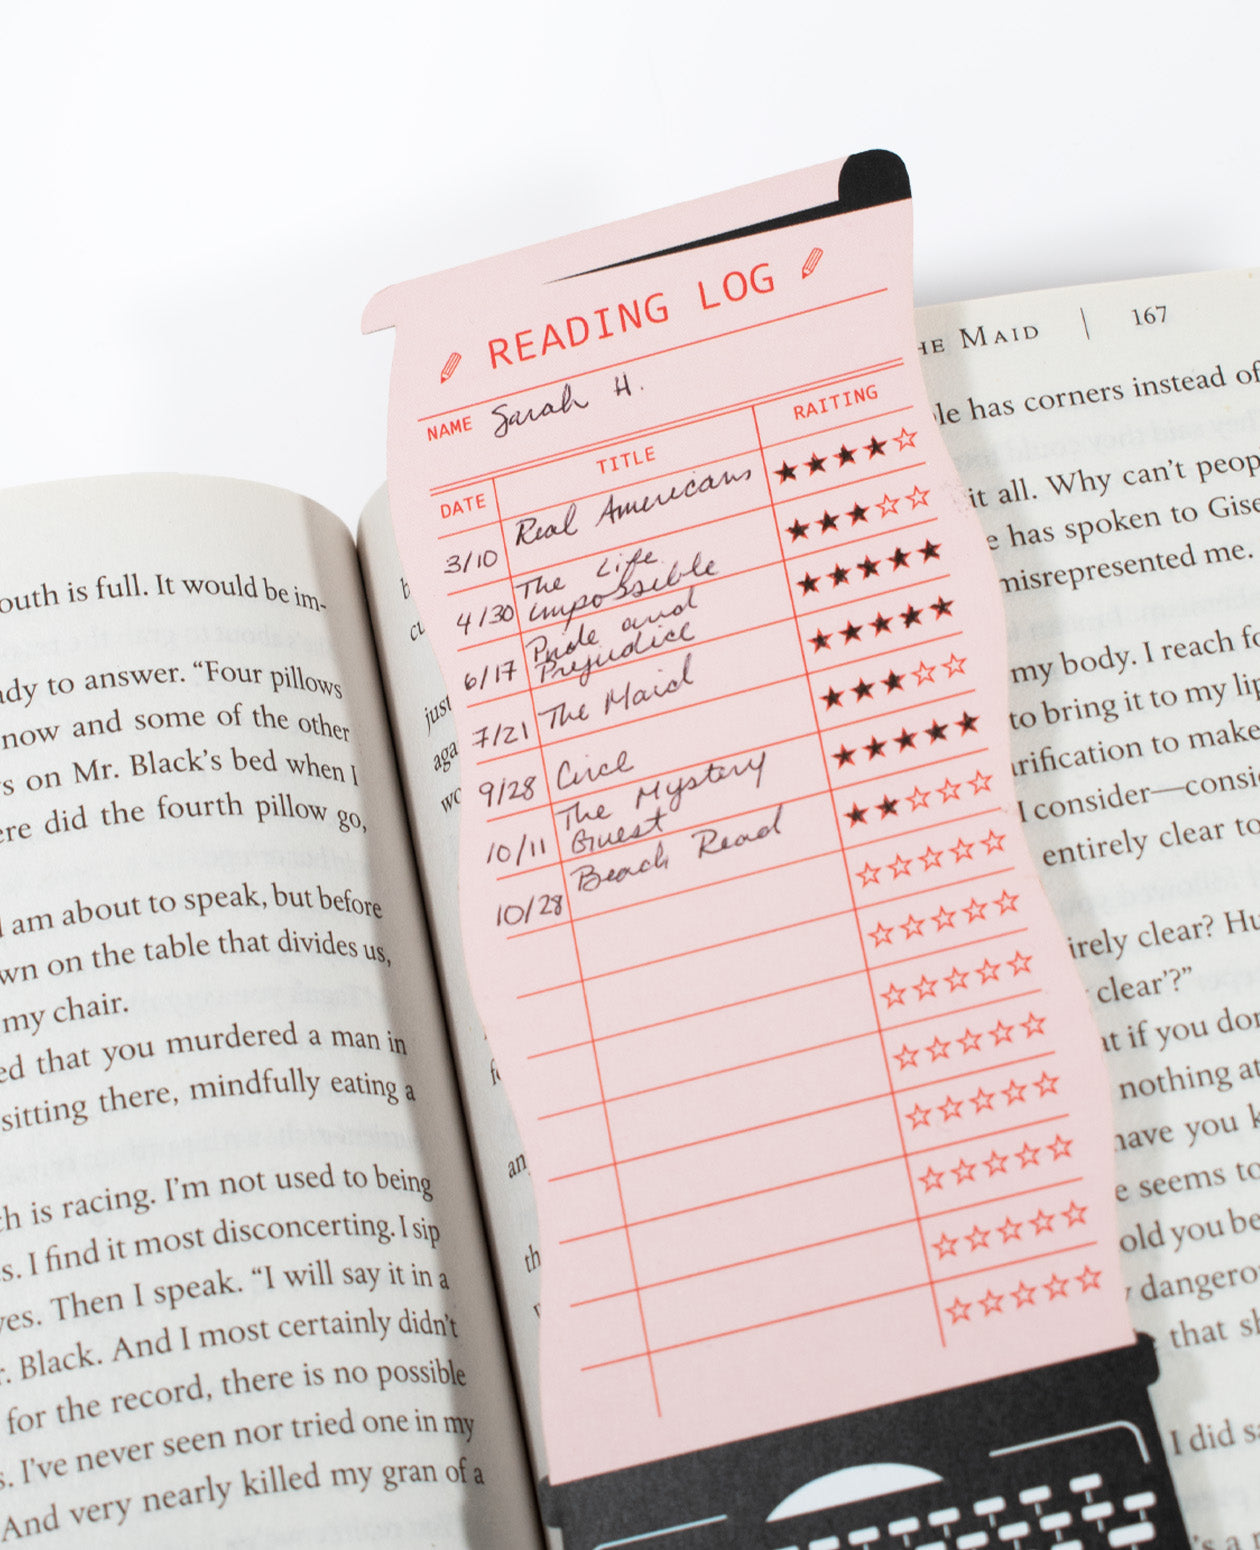 READING LOG
NAME Sarah H.
DATE TITLE RAITING
3/10 Real Americans ★★★★☆
4/30 The Life
Impossible ★★★☆☆
6/17 Pride and
Prejudice ★★★★★
7/21 The Maid ★★★★★
9/28 Circe ★★★☆☆
10/11 The Mystery
Guest ★★★★★
10/28 Beach Read ★★☆☆☆
☆☆☆☆☆
☆☆☆☆☆
☆☆☆☆☆
☆☆☆☆☆
☆☆☆☆☆
☆☆☆☆☆
☆☆☆☆☆
☆☆☆☆☆
outh is full. It would be im-
dy to answer. “Four pillows
now and some of the other
s on Mr. Black’s bed when I
ere did the fourth pillow go,
I am about to speak, but before
wn on the table that divides us,
my chair.
ed that you murdered a man in
sitting there, mindfully eating a
ch is racing. I’m not used to being
s. I find it most disconcerting. I sip
yes. Then I speak. “I will say it in a
r. Black. And I most certainly didn’t
for the record, there is no possible
s. I’ve never seen nor tried one in my
And very nearly killed my gran of a
just
aga
wo
an
th
HE MAID | 167
le has corners instead of
it all. Why can’t peop
e has spoken to Gise
misrepresented me.
my body. I reach fo
to bring it to my lip
arification to make
I consider—consi
entirely clear to
irely clear? Hu
clear’?”
at if you don
nothing at
have you k
e seems to
old you be
y dangero
that sh
I did sa
’s a r